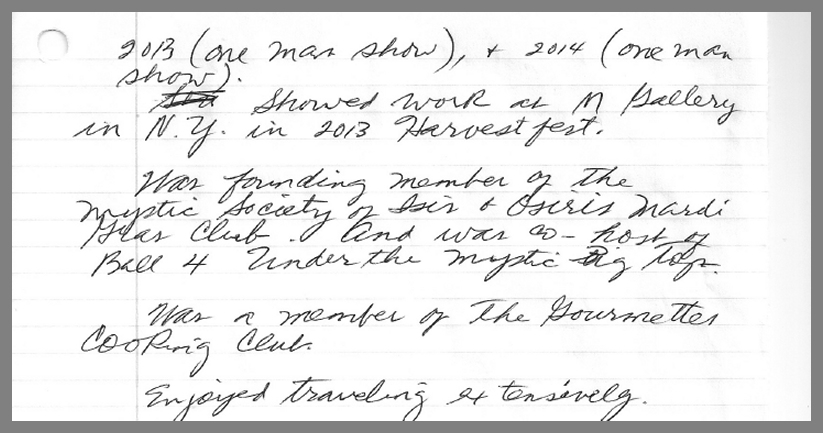 2013 (one man show), + 2014 (one man
show).
Showed work at M Gallery
in N.Y. in 2013 Harvestfest.
Was founding member of the
Mystic Society of Isis & Osiris Mardi
Gras Club. And was co-host of
Ball 4 Under the Mystic Big Top.
Was a member of The Gourmettes
Cooking Club.
Enjoyed traveling extensively.